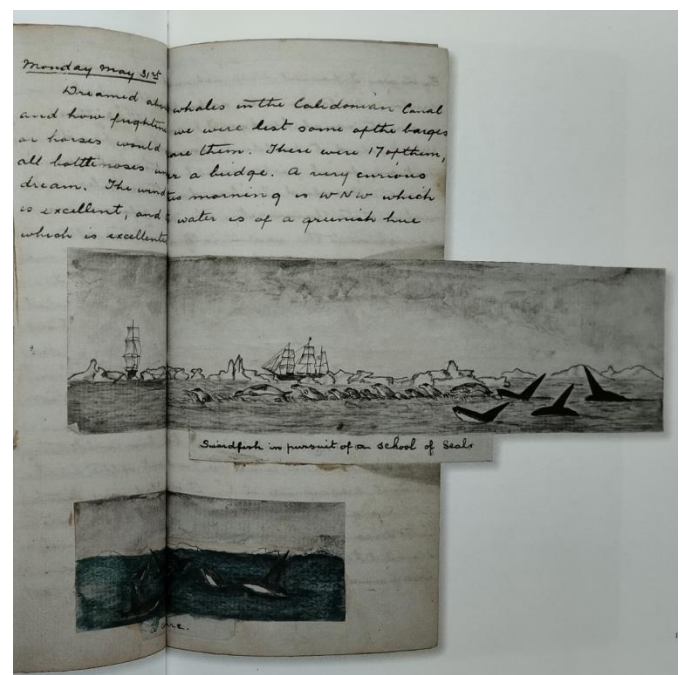 Monday May 31st
Dreamed about whales in the Caledonian Canal
and how frightened we were lest some of the barges
or horses would them. There were 17 of them,
all bottlenoses under a bridge. A very curious
dream. The wind this morning is WNW which
is excellent, and water is of a greenish hue
which is excellenter
Swordfish in pursuit of a school of Seals